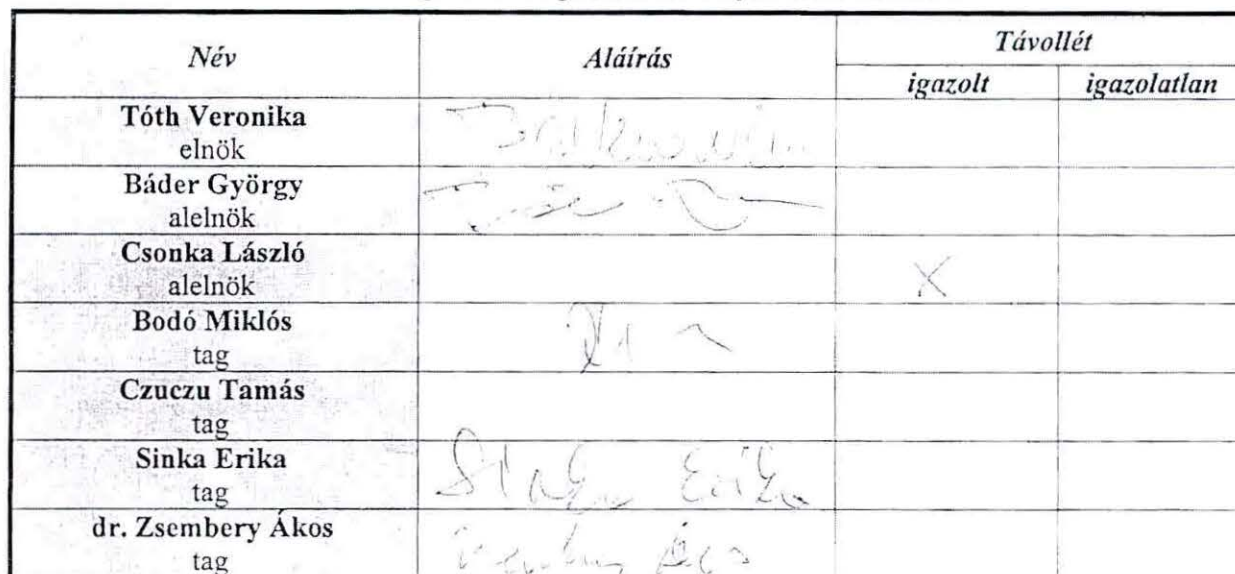 Név Aláírás Távollét
igazolt igazolatlan
Tóth Veronika
elnök
Báder György
alelnök
Csonka László
alelnök X
Bodó Miklós
tag
Czuczu Tamás
tag
Sinka Erika Sinka Erika
tag
dr. Zsembery Ákos
tag